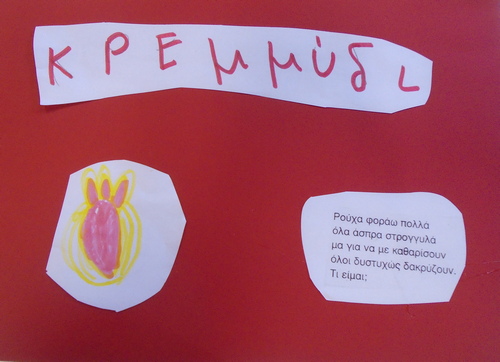 ΚΡΕμμύδι
Ρούχα φοράω πολλα
όλα άσπρα στρογγυλά
μα για να με καθαρίσουν
όλοι δυστυχώς δακρύζουν.
Τι είμαι;